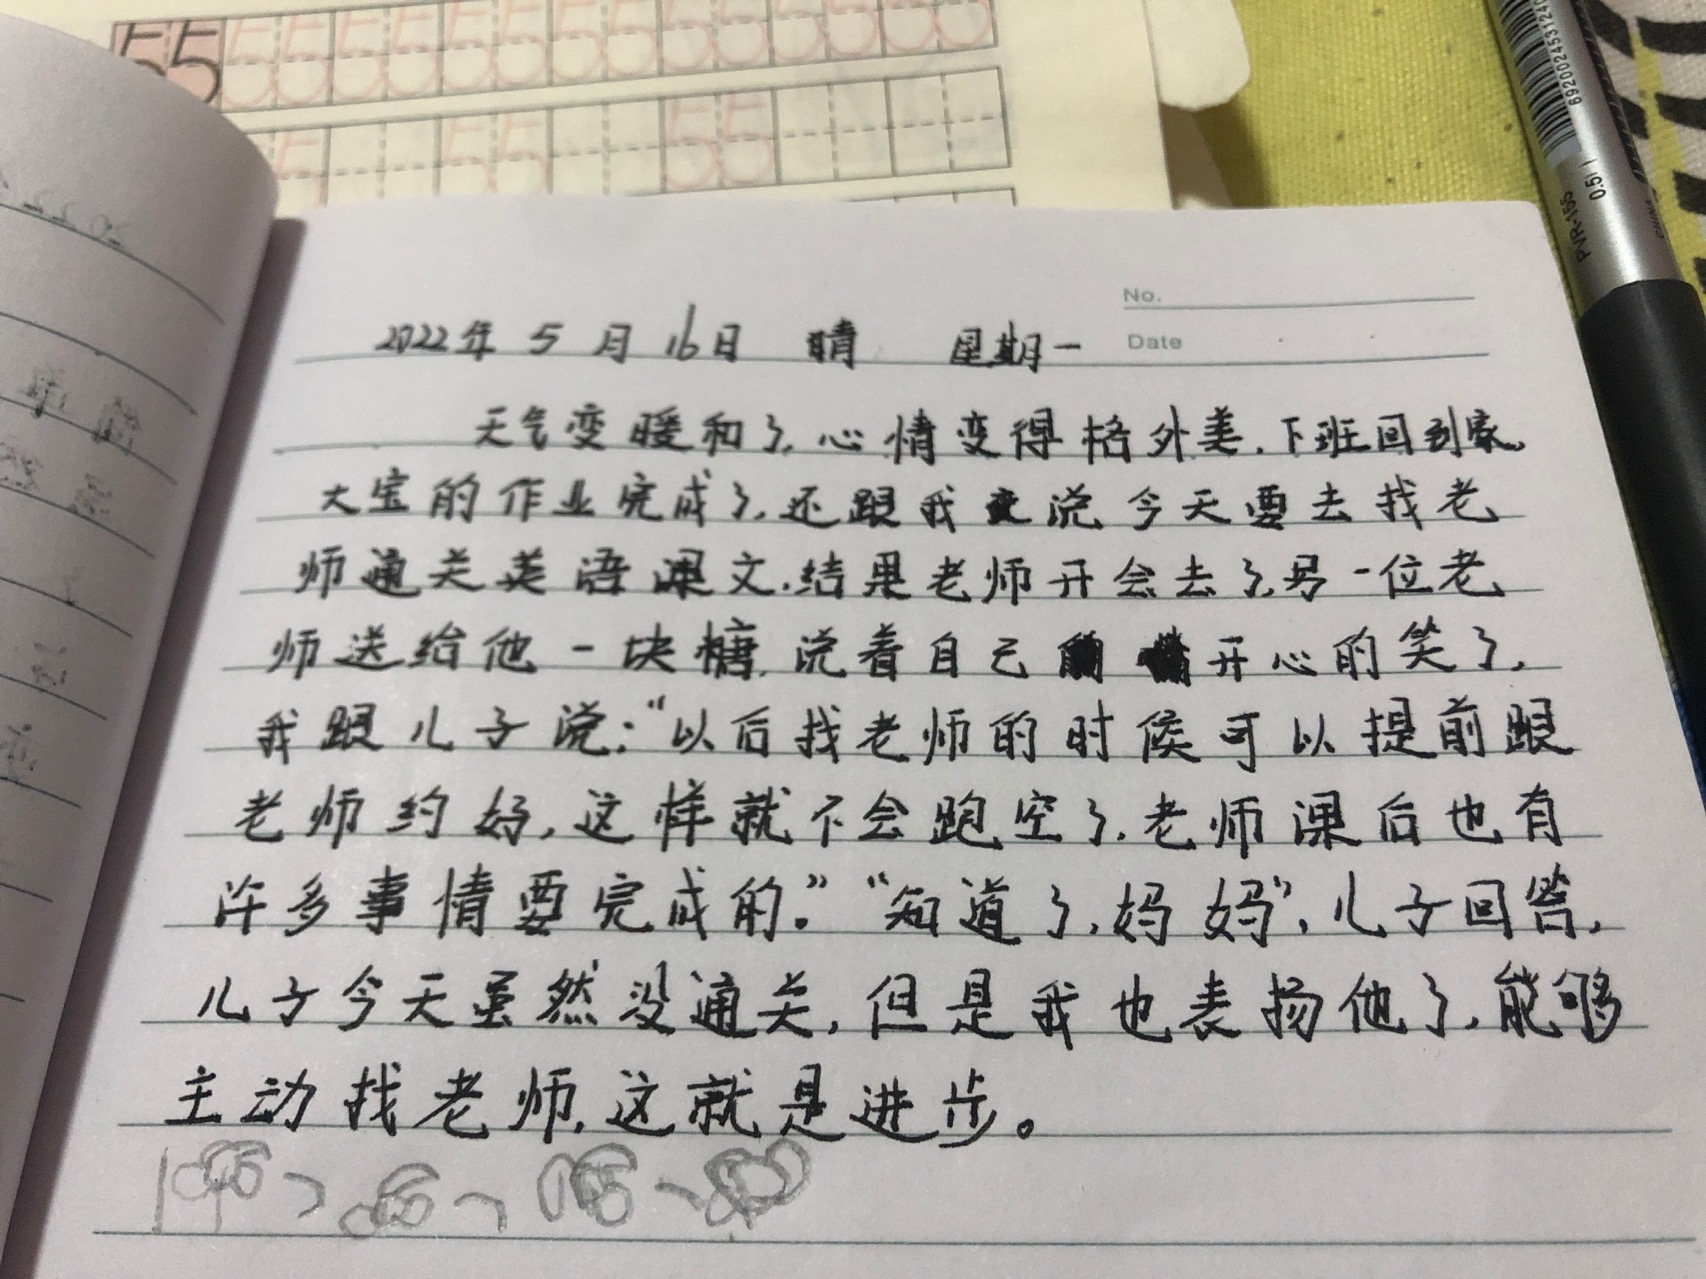 55 55 55 55 55 55 55 55
5 55 55
6920024531240
PVR-155 0.5
No.
Date
2022年 5月16日 晴 星期一
天气变暖和了,心情变得格外美.下班回到家,
大宝的作业完成了,还跟我说今天要去找老
师通关英语课文.结果老师开会去了,另一位老
师送给他一块糖,说着自己开心的笑了,
我跟儿子说:“以后找老师的时候可以提前跟
老师约好,这样就不会跑空了.老师课后也有
许多事情要完成的。”“知道了,妈妈”,儿子回答,
儿子今天虽然没通关,但是我也表扬他了,能够
主动找老师,这就是进步。